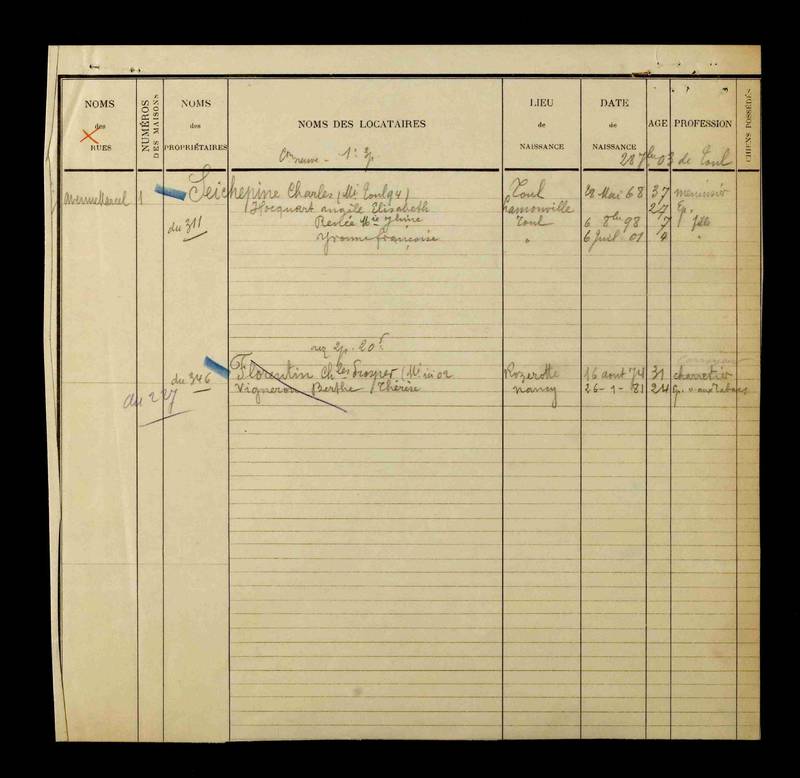 NOMS des RUES
NUMÉROS DES MAISONS
NOMS des PROPRIÉTAIRES
NOMS DES LOCATAIRES
LIEU de NAISSANCE
DATE de NAISSANCE
AGE
PROFESSION
CHIENS POSSÉDÉS
neuve - 1: 3p
28 7bre 03 de Toul
1 Seichepine Charles (Mé Toul 94) Toul 28 Mai 68 37 menuisier
Hocquart angèle Elisabeth 27 Ep.
du 311 Renée Mie Toul 6 8bre 98 7 fille
Yvonne françoise " 6 Juil. 01 4 "
rez 2p. 20f
du 346 Florentin Chles Prosper (Mé ici 02 Rozerotte 16 aout 74 31 charretier
Vigneron Berthe Thérèse Nancy 26-1-81 24 Ep.
du 227